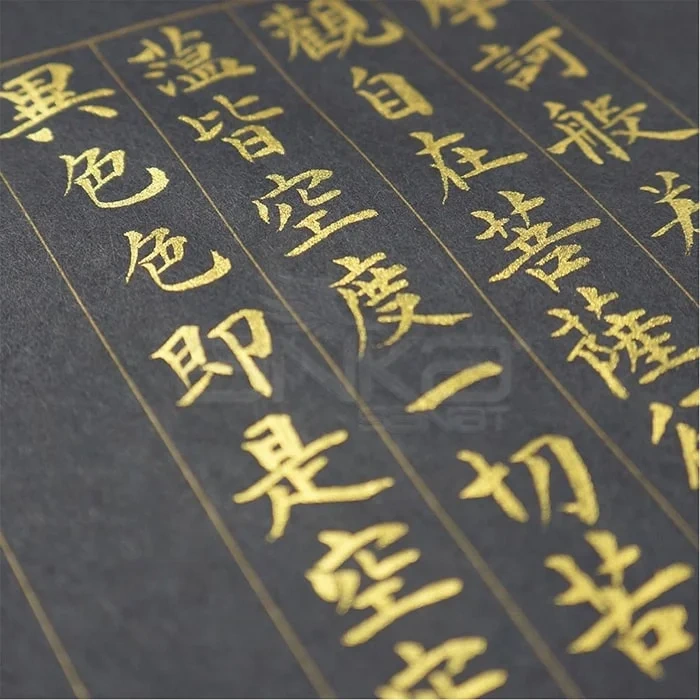 訶般若
觀自在菩薩
蘊皆空度一切苦
異色色即是空空
anka
sanat